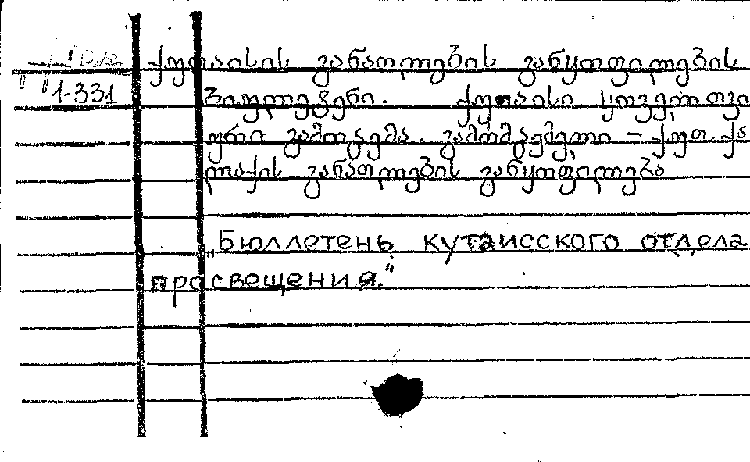 ქუთაისის განათლების განყოფილების
1-331 ბიულეტენი. ქუთაისი ყოველთვი
ური გამოცემა. გამომცემელი – ქუთ. ქა
ლაქის განათლების განყოფილება
„Бюллетень кутаисского отдела
просвещения."